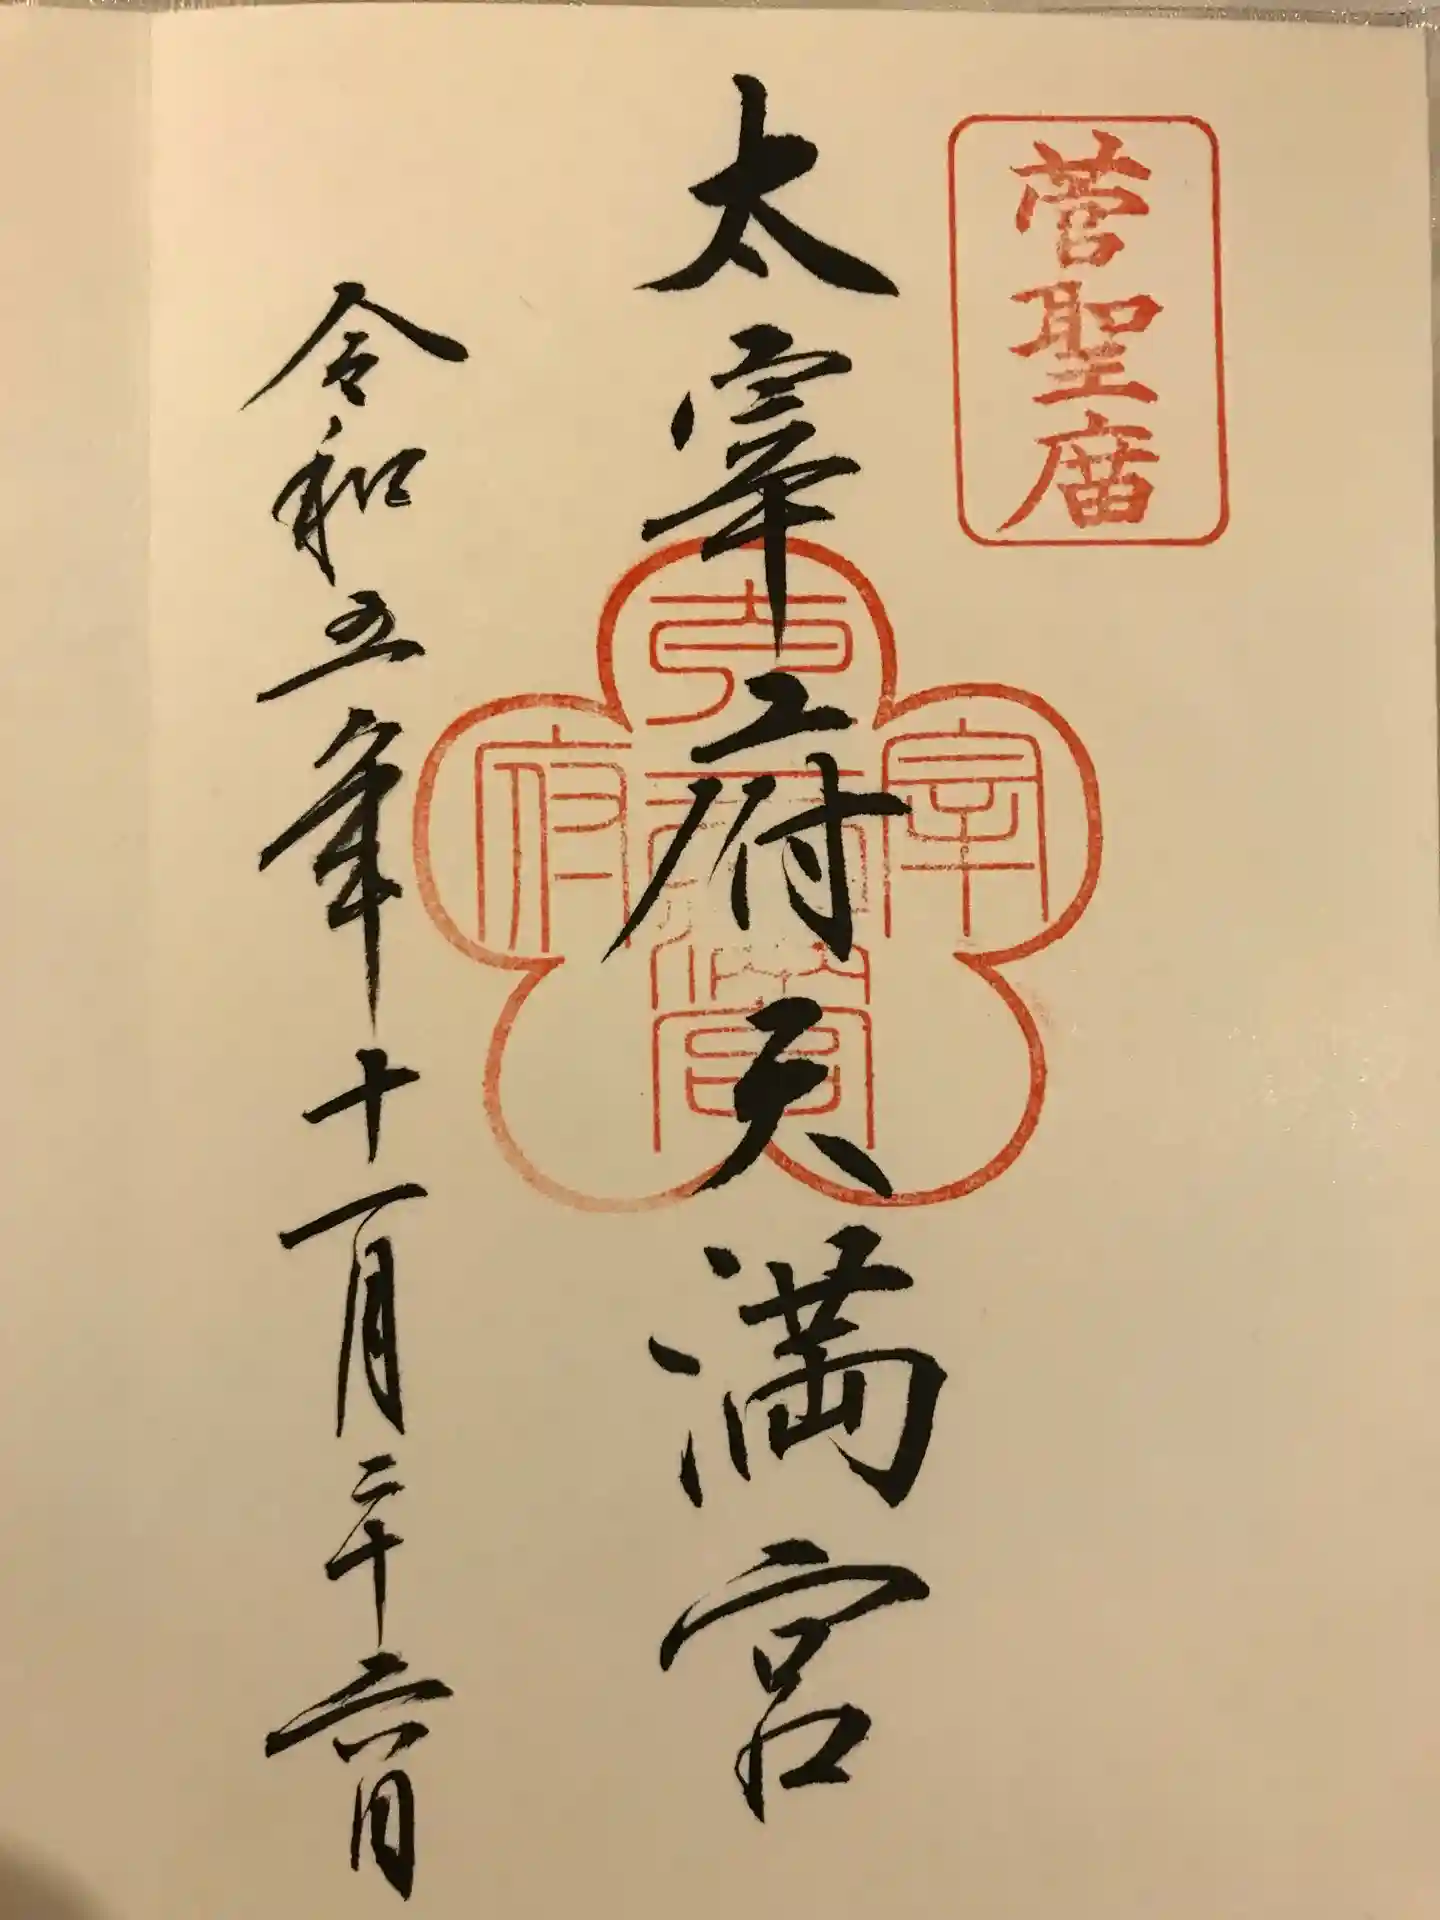 菅聖庿
太宰府天満宮
太宰府天満宮
令和五年十一月二十六日